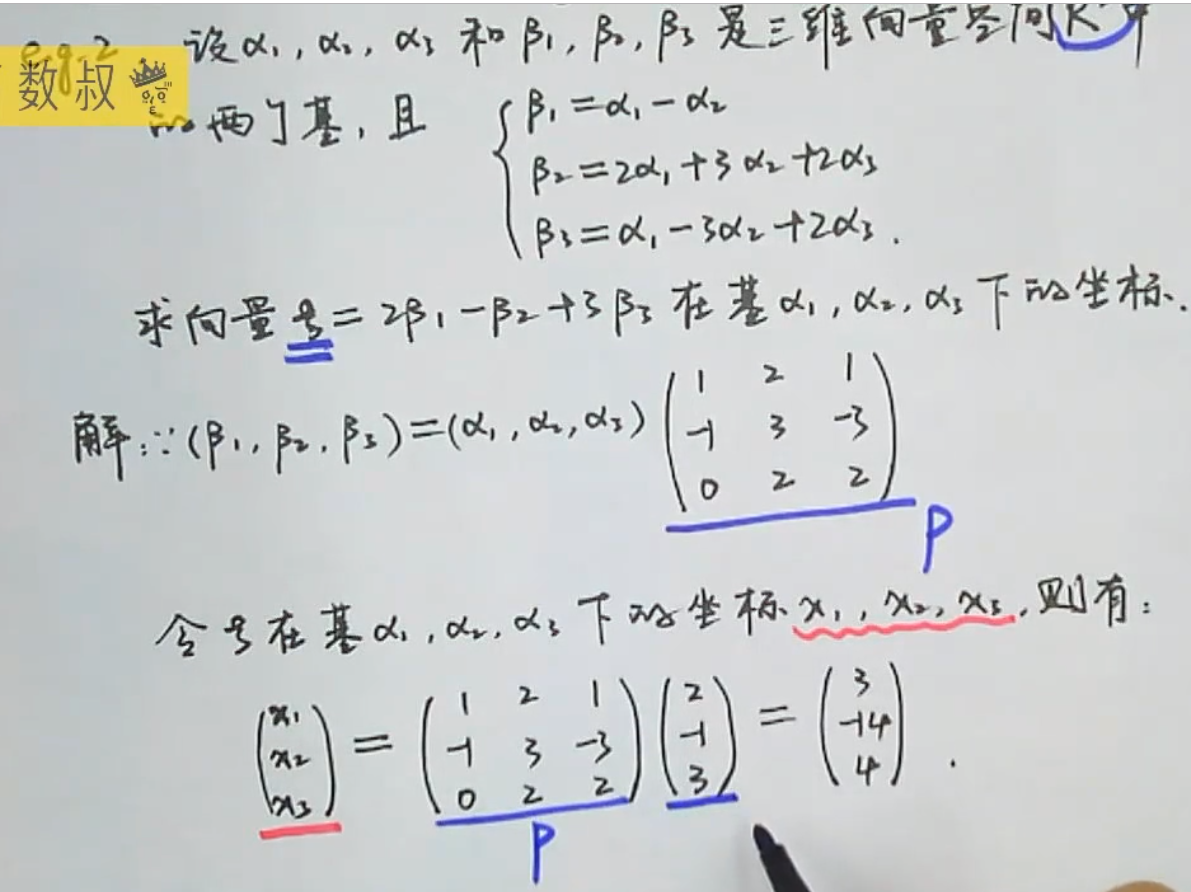 e.g.2 设α₁, α₂, α₃ 和 β₁, β₂, β₃ 是三维向量空间R³中
数叔
的两个基, 且 { β₁=α₁-α₂
β₂=2α₁+3α₂+2α₃
β₃=α₁-3α₂+2α₃.
求向量ξ=2β₁-β₂+3β₃在基α₁, α₂, α₃下的坐标.
解:∵(β₁, β₂, β₃)=(α₁, α₂, α₃) ( 1 2 1
-1 3 -3
0 2 2 )
P
令ξ在基α₁, α₂, α₃下的坐标x₁, x₂, x₃, 则有:
(x₁ x₂ x₃) = ( 1 2 1 -1 3 -3 0 2 2 ) ( 2 -1 3 ) = ( 3 -14 4 ) .
P